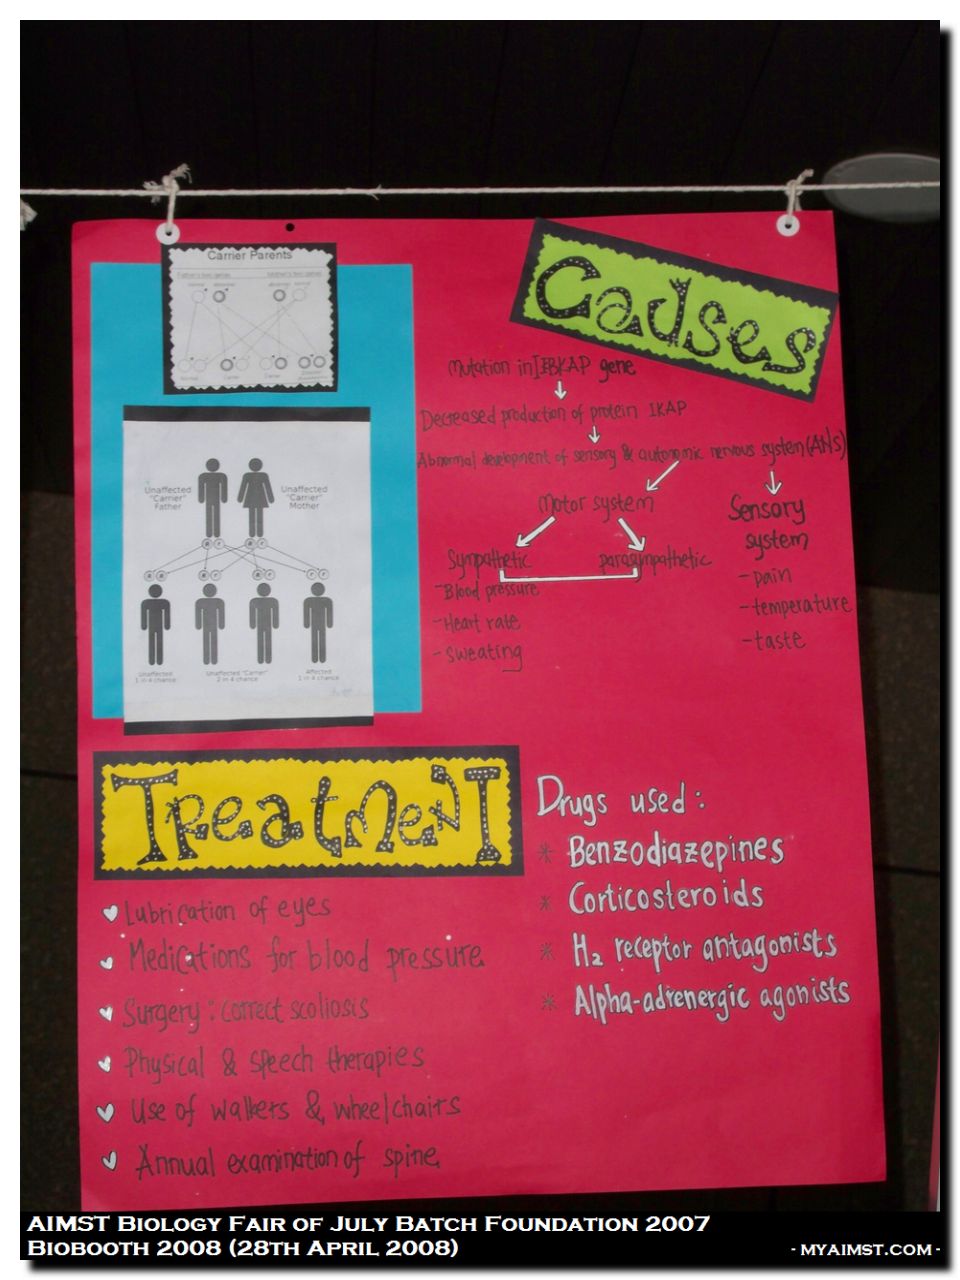 Carrier Parents
Father's two genes
Mother's two genes
normal
abnormal
abnormal
normal
Normal
Carrier
Carrier
Unaffected "Carrier" Father
Unaffected "Carrier" Mother
Unaffected
1 in 4 chance
Unaffected "Carrier"
2 in 4 chance
Affected
1 in 4 chance
Causes
Mutation in IEBKAP gene
Decreased production of protein IKAP
Abnormal development of sensory & autonomic nervous system (ANs)
Motor system
Sensory system
Sympathetic
parasympathetic
- Blood pressure
- Heart rate
- Sweating
- pain
- temperature
- taste
Treatment
Lubrication of eyes
Medications for blood pressure
Surgery : correct scoliosis
Physical & speech therapies
Use of walkers & wheelchairs
Annual examination of spine
Drugs used :
* Benzodiazepines
* Corticosteroids
* H2 receptor antagonists
* Alpha-adrenergic agonists
AIMST Biology Fair of July Batch Foundation 2007
Biobooth 2008 (28th April 2008)
- myaimst.com -